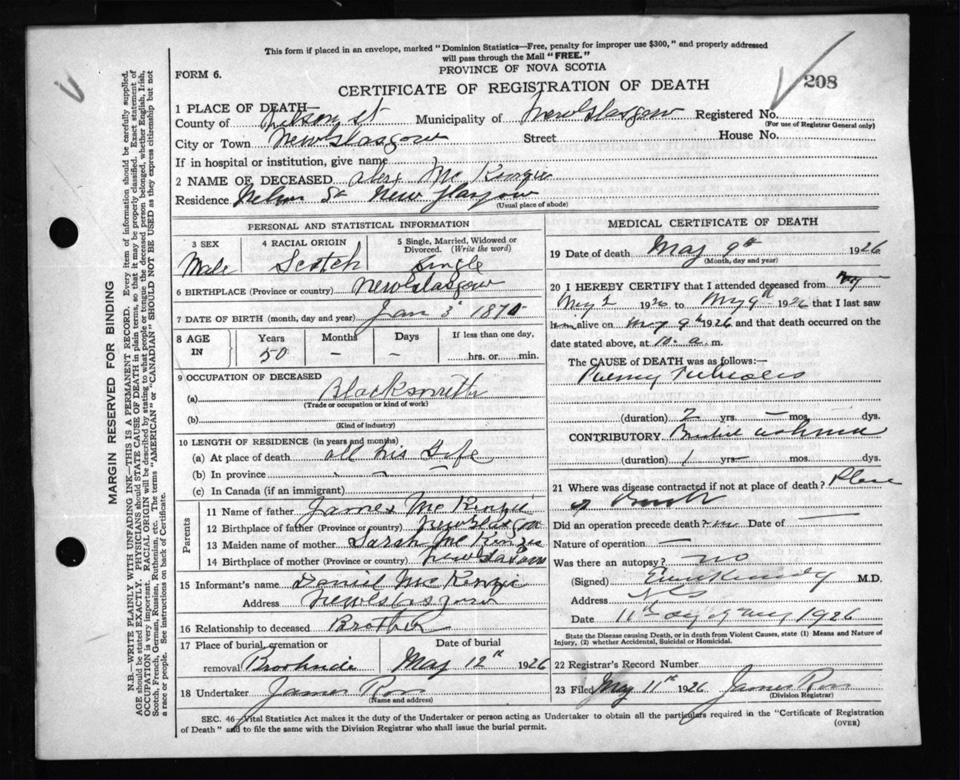 This form if placed in an envelope, marked "Dominion Statistics—Free, penalty for improper use $300," and properly addressed
will pass through the Mail "FREE."
PROVINCE OF NOVA SCOTIA
FORM 6.
CERTIFICATE OF REGISTRATION OF DEATH
208
1 PLACE OF DEATH—
County of Nelson St Municipality of New Glasgow Registered No.
(For use of Registrar General only)
City or Town New Glasgow Street House No.
If in hospital or institution, give name
2 NAME OF DECEASED Alex Mc Kenzie
Residence Nelson St New Glasgow
(Usual place of abode)
PERSONAL AND STATISTICAL INFORMATION
3 SEX 4 RACIAL ORIGIN 5 Single, Married, Widowed or Divorced. (Write the word)
Male Scotch Single
6 BIRTHPLACE (Province or country) New Glasgow
7 DATE OF BIRTH (month, day and year) Jan 3 187
8 AGE IN Years Months Days If less than one day,
50 — — hrs. or min.
9 OCCUPATION OF DECEASED
(a) Blacksmith
(Trade or occupation or kind of work)
(b)
(Kind of industry)
10 LENGTH OF RESIDENCE (in years and months)
(a) At place of death all his Life
(b) In province
(c) In Canada (if an immigrant)
Parents
11 Name of father James Mc Kenzie
12 Birthplace of father (Province or country) New Glasgow
13 Maiden name of mother Sarah Mc Kenzie
14 Birthplace of mother (Province or country) New Glasgow
15 Informant's name Daniel Mc Kenzie
Address New Glasgow
16 Relationship to deceased Brother
17 Place of burial, cremation or Date of burial
removal Brookside May 12th 1926
18 Undertaker James Ross
(Name and address)
MEDICAL CERTIFICATE OF DEATH
19 Date of death May 9th 1926
(Month, day and year)
20 I HEREBY CERTIFY that I attended deceased from
May 2 1926 to May 9th 1926 that I last saw
him alive on May 9th 1926 and that death occurred on the
date stated above, at 10 a.m.
The CAUSE of DEATH was as follows:—
(duration) 2 yrs. — mos. dys.
CONTRIBUTORY
(duration) 1 yrs. mos. dys.
21 Where was disease contracted if not at place of death? Place
of
Did an operation precede death? no Date of —
Nature of operation —
Was there an autopsy? no
(Signed) Kennedy M.D.
Address N G
Date 11th day of May 1926
State the Disease causing Death, or in death from Violent Causes, state (1) Means and Nature of
Injury, (2) whether Accidental, Suicidal or Homicidal.
22 Registrar's Record Number
23 Filed May 11th 1926 James Ross
(Division Registrar)
SEC. 46—Vital Statistics Act makes it the duty of the Undertaker or person acting as Undertaker to obtain all the particulars required in the "Certificate of Registration
of Death" and to file the same with the Division Registrar who shall issue the burial permit.
(OVER)
MARGIN RESERVED FOR BINDING
N.B.—WRITE PLAINLY WITH UNFADING INK—THIS IS A PERMANENT RECORD. Every item of information should be carefully supplied.
AGE should be stated EXACTLY. PHYSICIANS should STATE CAUSE OF DEATH in plain terms, so that it may be properly classified. Exact statement of
OCCUPATION is very important. RACIAL ORIGIN will be described by stating to what people or tongue the deceased person belonged, whether English, Irish,
Scotch, French, German, Russian, Ruthenian, etc. The terms "AMERICAN" or "CANADIAN" SHOULD NOT BE USED as they express citizenship but not
a race or people. See instructions on back of Certificate.